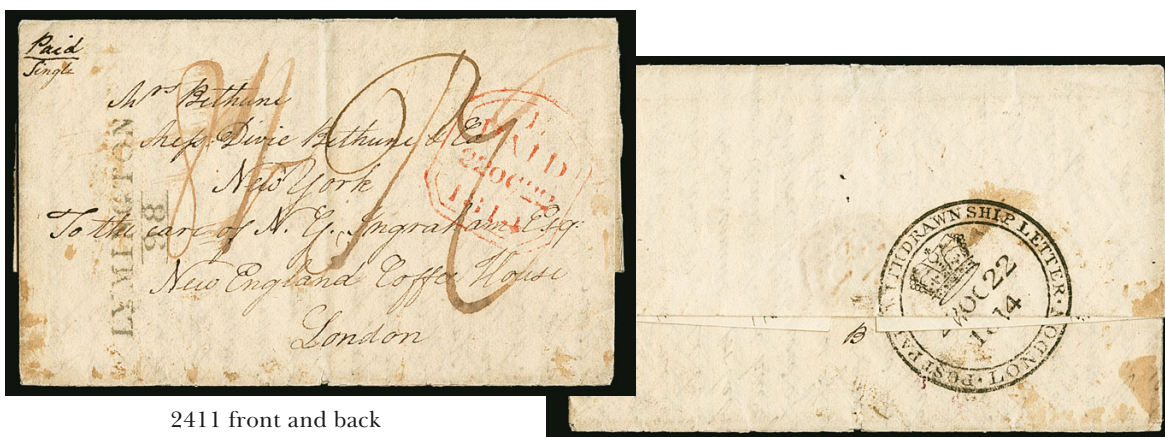 Paid
Single
Mrs Bethune
Ship: Divie Bethune & Co
New York
To the care of N. G. Ingraham Esqr.
New England Coffe House
London
LYMINGTON
98
PAID
22OC22
1814
POST PAID WITHDRAWN SHIP LETTER · LONDON ·
22OC22
1814
B
2411 front and back